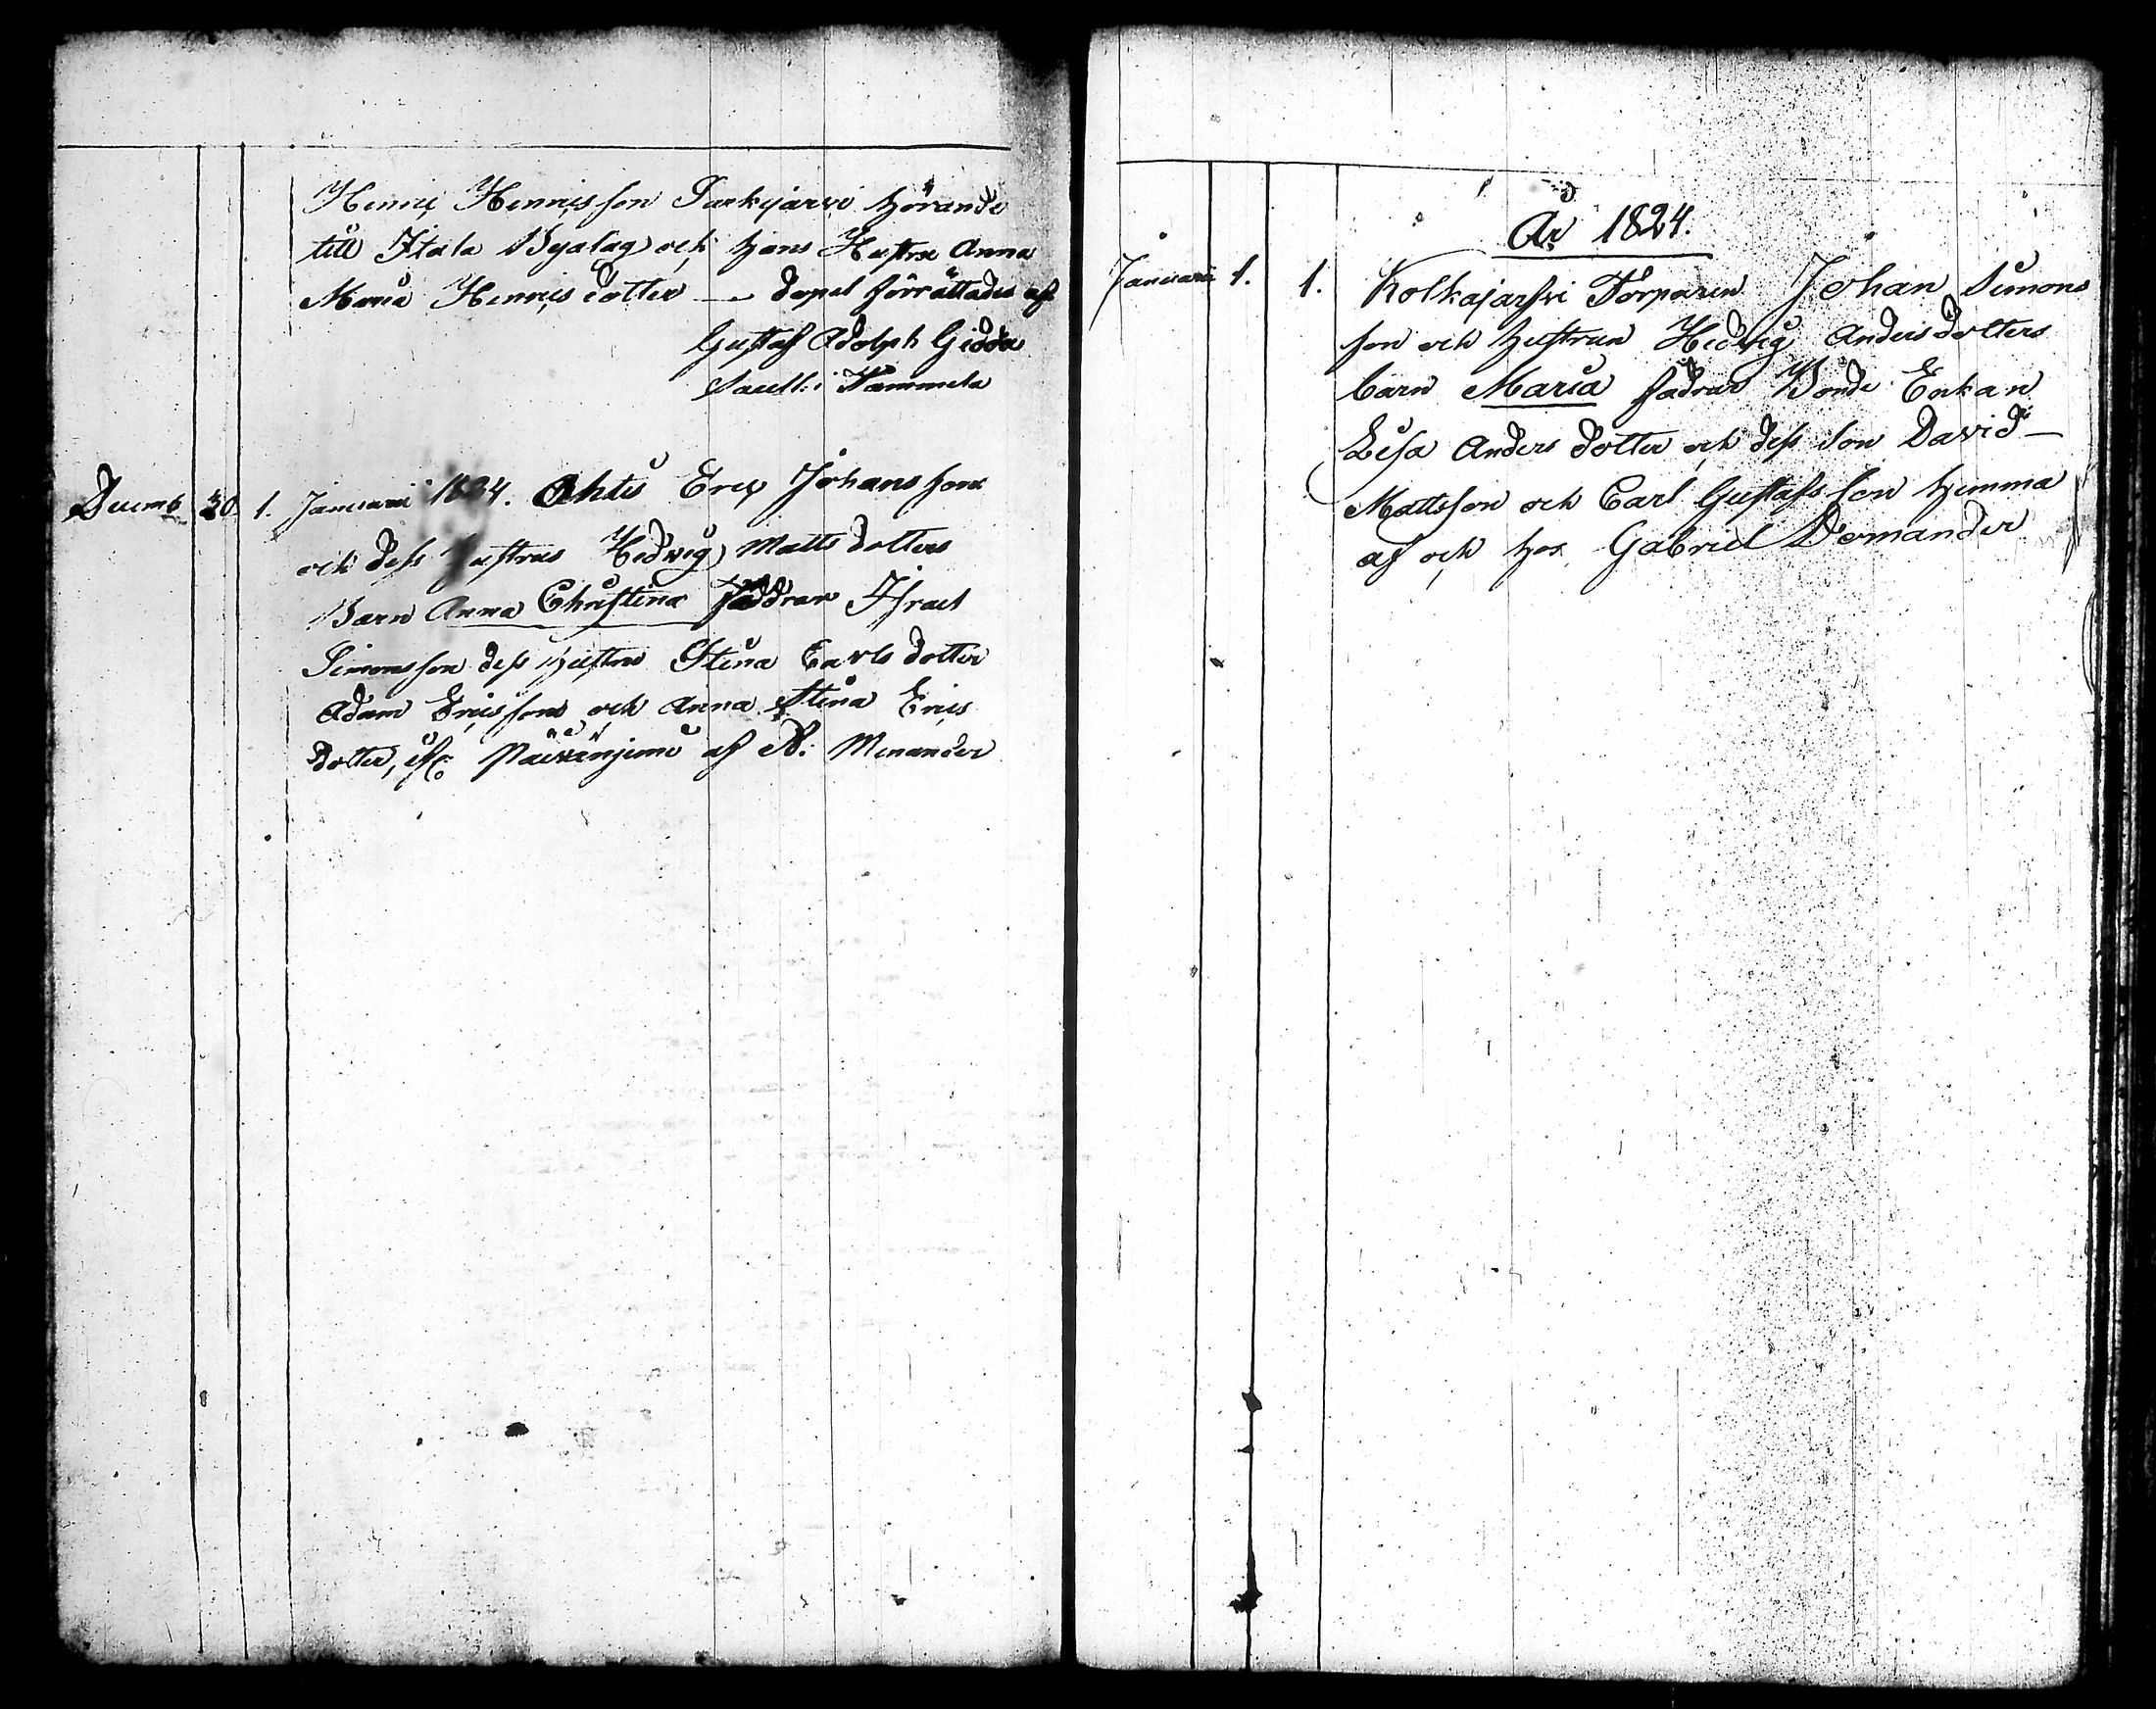 Henric Henricsson Sarkijarvi hörande
till Itala Byalag och hans Hustru Anna
Maria Henricsdotter — dopet förrättades af
Gustaf Adolph Gidda
Sacell: i Tammela
Decemb 30 1. Januarii 1824. Ahtis Eric Johansson
och dess hustrus Hedvig Mattsdotters
Barn Anna Christina Faddrar Israel
Simonsson dess Hustru Stina Carlsdotter
Adam Ericsson och Anna Stina Erics
dotter, af N: Menander
År 1824.
Januarii 1. 1. Kolkajarfvi Torparen Johan Simons
son och hustrun Hedvig Andersdotters
barn Maria fadrar Bonde Enkan
Lisa Anders dotter och dess Son David —
Mattsson och Carl Gustafsson hemma
af och hos Gabriel Domander